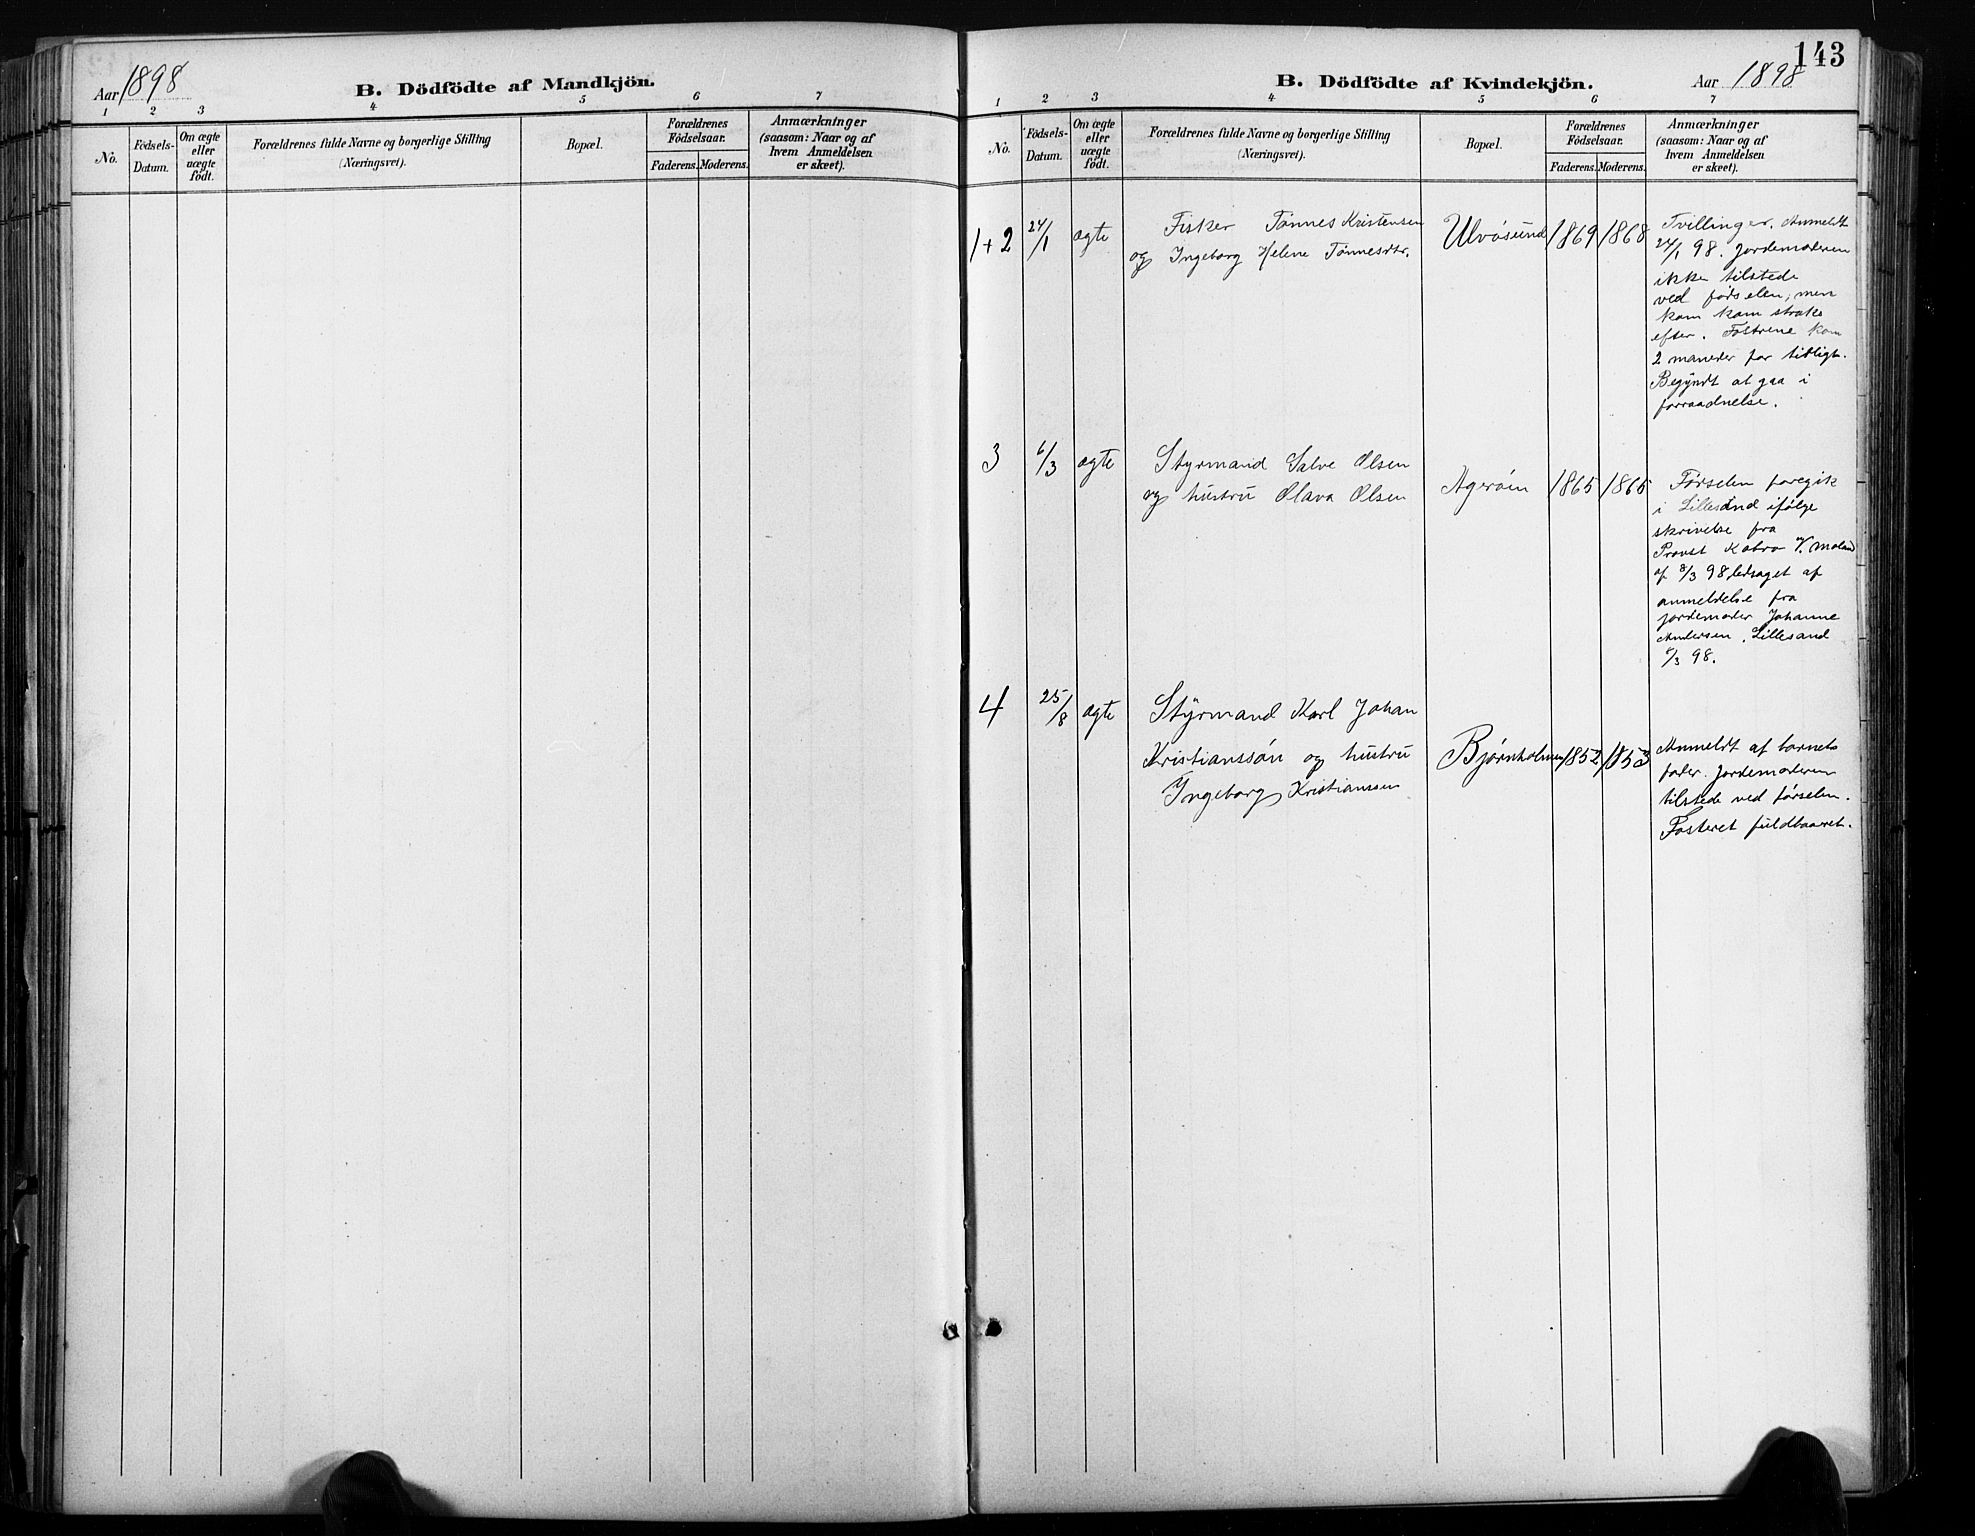 Aar 1898
B. Dödfödte af Mandkjön.
1 2 3 4 5 6 7
No.
Födsels-
Datum.
Om ægte
eller
uægte
født.
Forældrenes fulde Navne og borgerlige Stilling
(Næringsvei).
Bopæl.
Forældrenes
Födselsaar.
Faderens. Moderens.
Anmærkninger
(saasom: Naar og af
hvem Anmeldelsen
er skeet).
143
B. Dödfödte af Kvindekjön.
Aar 1898
1 2 3 4 5 6 7
No.
Födsels-
Datum.
Om ægte
eller
uægte
födt.
Forældrenes fulde Navne og borgerlige Stilling
(Næringsvei).
Bopæl.
Forældrenes
Födselsaar.
Faderens. Moderens.
Anmærkninger
(saasom: Naar og af
hvem Anmeldelsen
er skeet).
1+2 24/1 ægte
Fisker Tønnes Kristensen
og Ingeborg Helene Tønnesdtr.
Ulvøsund 1869 1868
Tvillinger. Anmeldt
24/1 98. Jordemoderen
ikke tilstede
ved fødselen, men
kom kom straks
efter. Fostrene kom
2 maneder for tidligt.
Begyndt at gaa i
forraadnelse.
3 6/3 ægte
Styrmand Salve Olsen
og hustru Olava Olsen
Agerøen 1865 1865
Førselen foregik
i Lillesand ifølge
skrivelse fra
Provst Kobro V. Moland
af 8/3 98 ledsaget af
anmeldelse fra
jordemoder Johanne
Andersen, Lillesand
/3 98.
4 25/8 ægte
Styrmand Karl Johan
Kristianssøn og hustru
Ingeborg Kristianssen
Bjørnholmen 1852 1853
Anmeldt af barnets
fader. Jordemoderen
tilstede ved førselen.
Fosteret fuldbaaret.